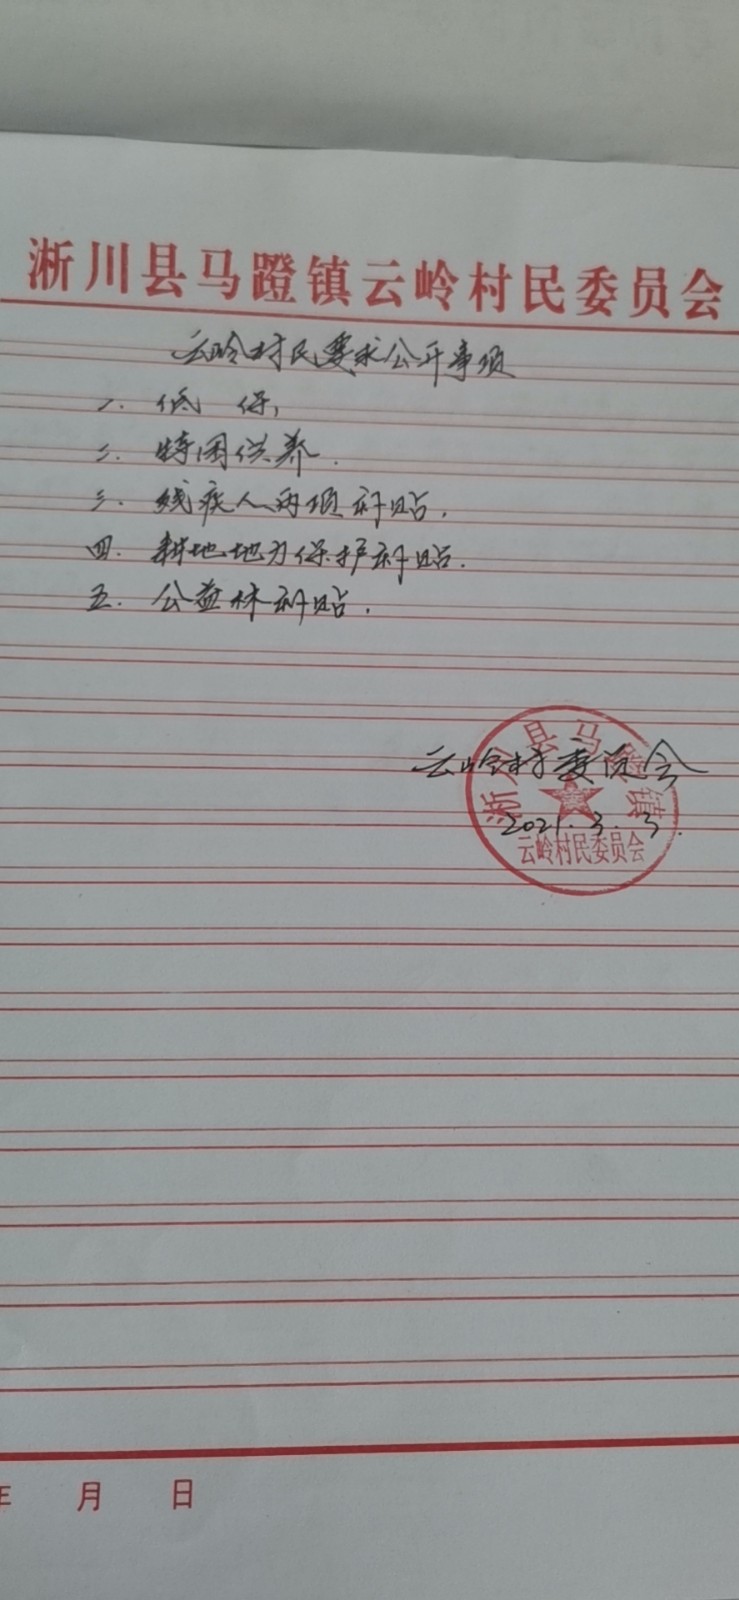 淅川县马蹬镇云岭村民委员会
云岭村民要求公开事项
一、低保，
二、特困供养．
三、残疾人两项补贴．
四、耕地地力保护补贴．
五、公益林补贴．
云岭村委员会
2021.3.3.
淅川县马蹬镇
云岭村民委员会
年 月 日